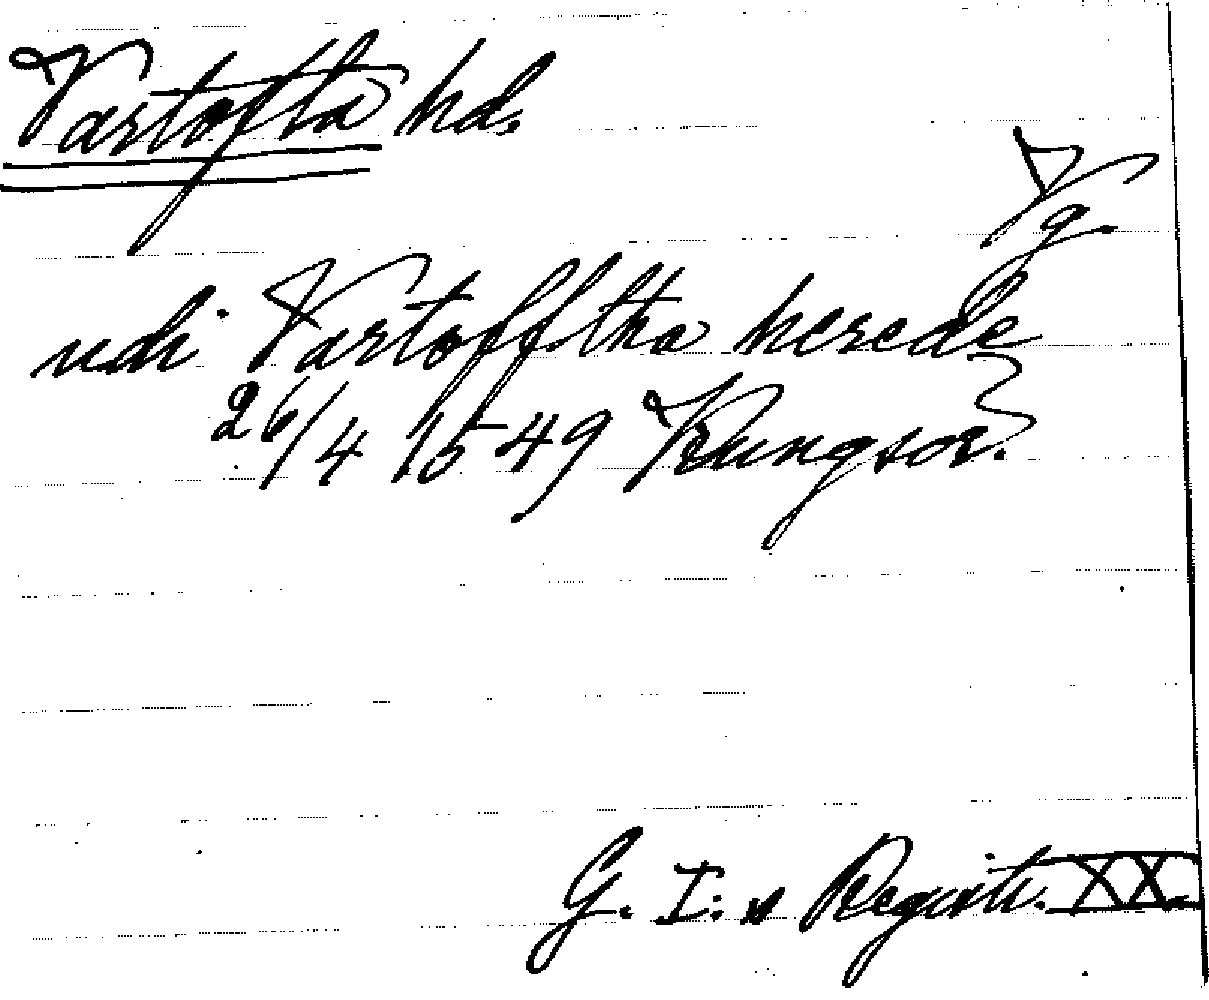 Vartofta hd.
Vg.
udi Vartofftha herede
26/4 1549 Kungsör.
G. I:s Registr. XX.